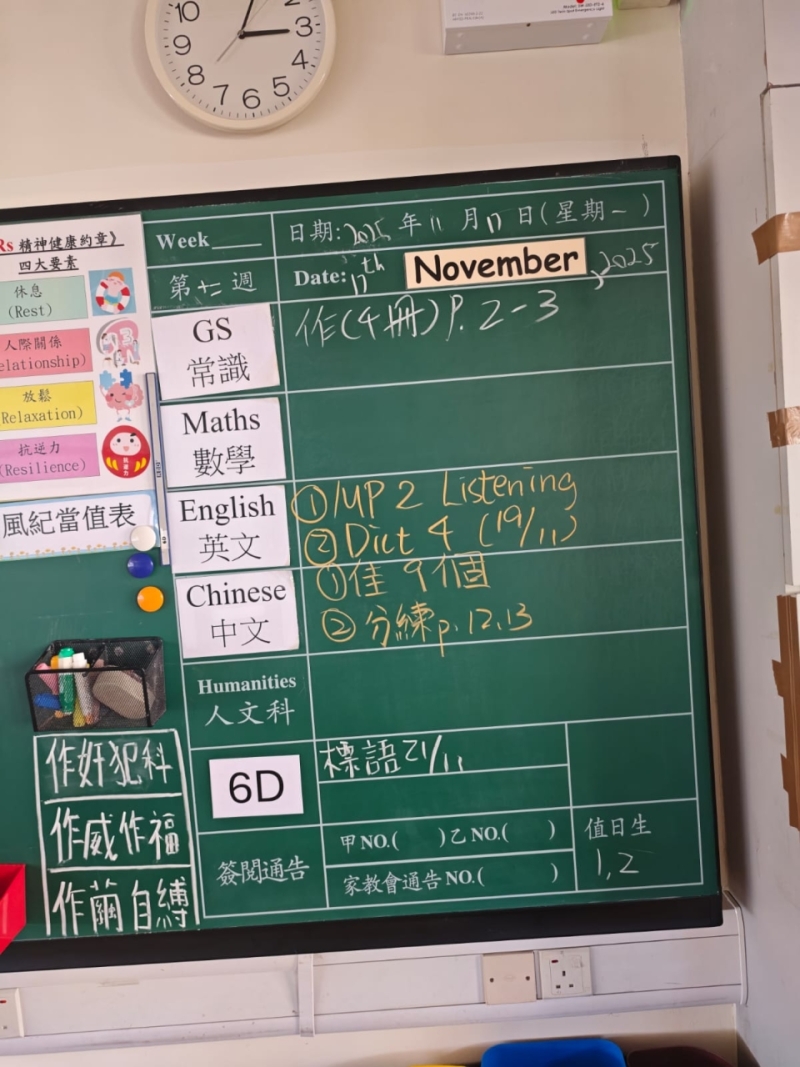 10 2 9 3 8 4 7 6 5
Rs 精神健康約章》
四大要素
休息
(Rest)
人際關係
elationship)
放鬆
(Relaxation)
抗逆力
(Resilience)
風紀當值表
Week____ 日期:2025 年 11 月 17 日(星期一)
第十二週 Date: 17th November, 2025
GS 作(4冊)P. 2-3
常識
Maths
數學
English ① MP 2 Listening
英文 ② Dict 4 (19/11)
Chinese ① 佳 9個
中文 ② 分練 p.12,13
Humanities
人文科
6D 標語 21/11
簽閱通告 甲NO.( )乙NO.( )
家教會通告NO.( )
值日生
1,2
作奸犯科
作威作福
作繭自縛